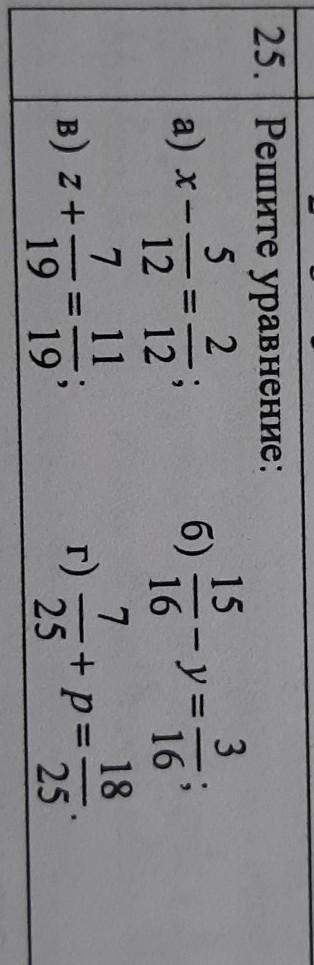 25. Решите уравнение:
а) x − 5/12 = 2/12; б) 15/16 − y = 3/16;
в) z + 7/19 = 11/19; г) 7/25 + p = 18/25.